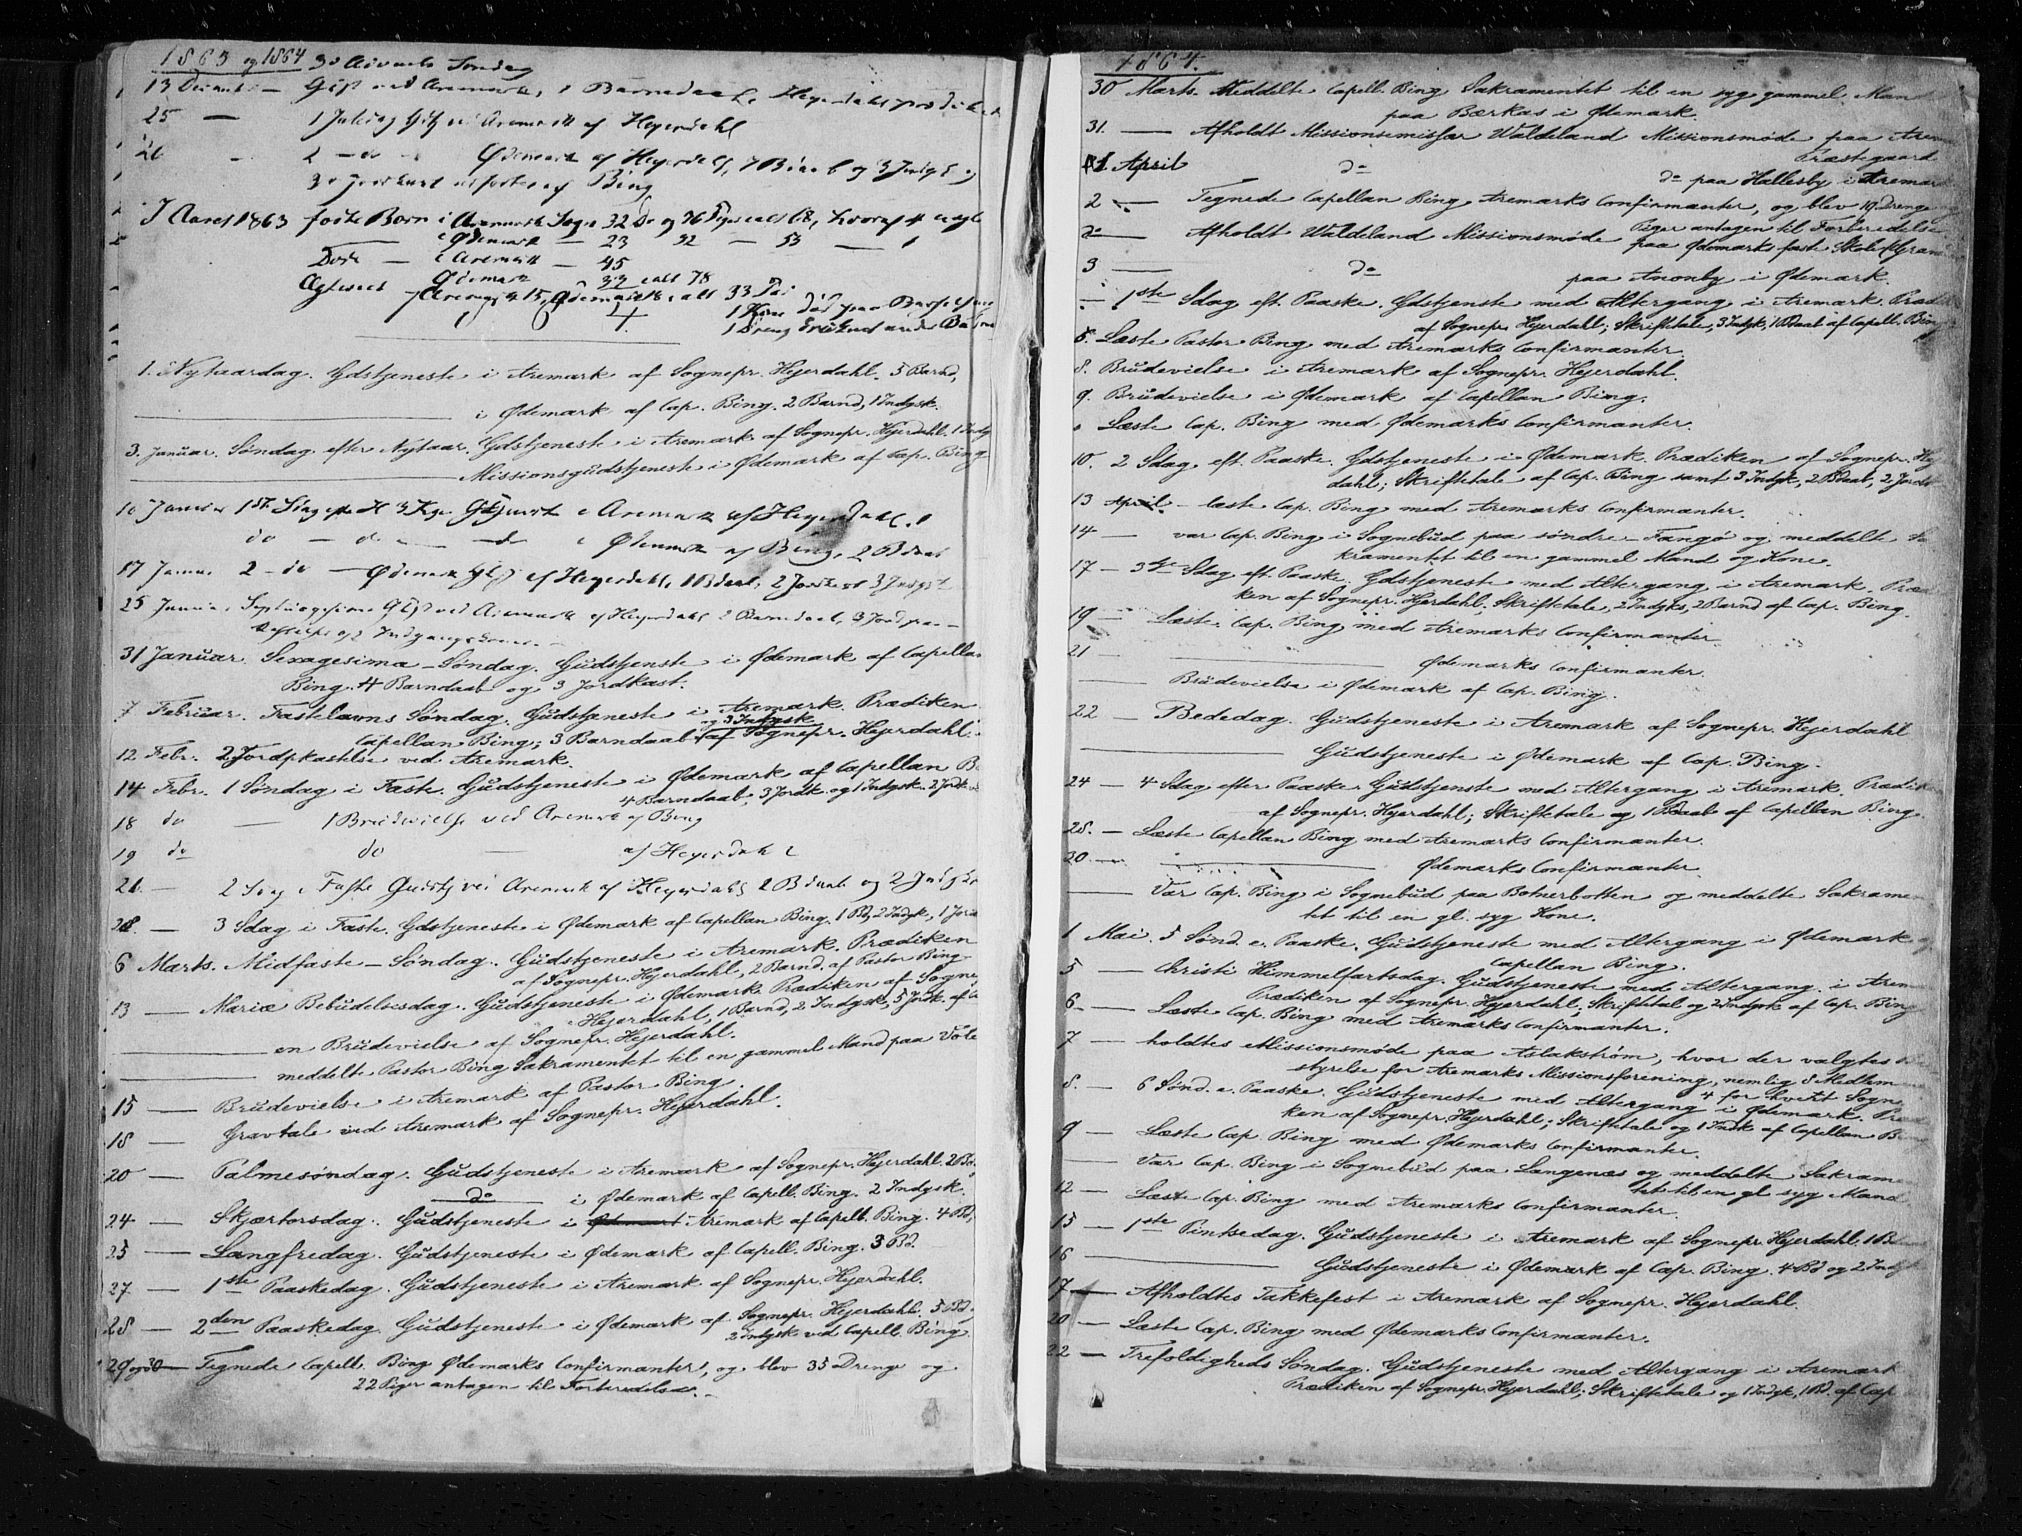 1863 og 1864 3 Advents Søndag
13 Decemb. — Gtj ved Aremark, 1 Barnedaab, Hejerdahl prædiket
25 — 1 Juledag Gtj ved Aremark af Hejerdahl
26 2 - do - Ødemark af Hejerdahl, 7 Bdaab og 3 Indgk og
3 Jordkast af Bing
I Aaret 1863 fødte Børn i Aremark Sogn 32 D og 36 Piger ialt 68, hvoraf 4 uægte
i Ødemark — 23 32 — 55 — 1
Døde — i Aremark — 45
Ødemark 33 ialt 78
Aremark 15, Ødemark ialt 33 Par
1 Kone død paa Barselseng
1 Dreng
1. Nytaarsdag. Gdstjeneste i Aremark af Sognepr. Hejerdahl. 5 Barnd,
i Ødemark af Cap. Bing. 2 Barnd, 1 Indgsk.
3. Januar. Søndag efter Nytaar. Gdstjeneste i Aremark af Sognepr. Hejerdahl. 1 Indg
Missionsgudstjeneste i Ødemark af Cap. Bing
10 Januar 1st. Sdag efter H 3 Kgr Gtjenest i Aremark af Hejerdahl.
do — do — do i Ødemark af Bing, 2 Bdaab
17 Januar 2 - do — Ødemark Gtj af Hejerdahl, 1 Bdaab, 2 Jordkast 3 Indgsk
25 Januar Septuagesima Gtj ved Aremark af Hejerdahl 2 Barnedaab, 3 Jordpaa-
kastelse og 2 Indgangskoner.
31 Januar. Sexagesima-Søndag. Gudstjeneste i Ødemark af Capellan
Bing. 4 Barndaab og 3 Jordkast.
7 Februar. Fastelavns Søndag. Gudstjeneste i Aremark. Prædiken
og 3 Indgsk
Capellan Bing; 3 Barndaab af Sognepr. Hejerdahl.
12 Febr. 2 Jordpkastelse ved Aremark.
14 Febr. 1 Søndag i Faste. Gudstjeneste i Ødemark af Capellan B
4 Barndaab, 3 Jordk. og 1 Indgsk. 2 Jordk
18 do — 1 Brudevielse ved Aremark af Bing
19 do do — af Hejerdahl
21. — 2 Sdag i Faste Gudstj ved Aremark af Hejerdahl 2 Bdaab og 2 Indgk
28. — 3 Sdag i Faste. Gdstjeneste i Ødemark af Capellan Bing, 1 Bd, 2 Indgk, 1 Jord
6 Marts. Midfaste-Søndag. Gudstjeneste i Aremark. Prædiken
af Sognepr. Hejerdahl, 2 Barnd. af Pastor Bing.
13 — Mariæ Bebudelsesdag. Gudstjeneste i Ødemark. Prædiken af Sogne
Hejerdahl, 1 Barnd, 2 Indgsk, 5 Jordk. af C
en Brudevielse af Sognepr. Hejerdahl.
meddelte Pastor Bing Sakramentet til en gammel Mand paa
15 — Brudevielse i Aremark af Pastor Bing.
18 — Gravtale ved Aremark af Sognepr. Hejerdahl.
20 — Palmesøndag. Gudstjeneste i Aremark af Sognepr. Hejerdahl. 2 Bd
do i Ødemark af Capell. Bing. 2 Indgsk.
24 — Skjærtorsdag. Gudstjeneste i Ødemark Aremark af Capell. Bing. 4 Bd,
25 — Langfredag. Gudstjeneste i Ødemark af Capell. Bing. 3 Bd.
27 — 1ste Paaskedag. Gudstjeneste i Aremark af Sognepr. Hejerdahl.
28 — 2den Paaskedag. Gudstjeneste i Ødemark af Sognepr. Hejerdahl. 5 Bd.
2 Indgsk ved Capell. Bing
29 og 30 — Tegnede Capell. Bing Ødemarks Confirmanter, og blev 35 Drenge og
22 Piger antagen til Forberedelse.
1864.
30 Marts. Meddelte Capell. Bing Sakramentet til en syg gammel Mand
paa Bærkas i Ødemark.
31. — Afholdt Missionsemissær Waldeland Missionsmøde paa Arem
Præstegaard
1 April do do paa Hallesby i Aremark
2 — Tegnede Capellan Bing Aremarks Confirmanter, og blev 19 Drenge og
Piger antagen til Forberedelse
do — Afholdt Waldeland Missionsmøde paa Ødemarks faste Skole
3 — do paa Anonby i Ødemark.
— 1ste Sdag eft. Paaske. Gdstjeneste med Altergang i Aremark. Præd
af Sognepr. Hejerdahl; Skriftetale, 3 Indgk. 1 Bdaab af Capell. Bing
5. Læste Pastor Bing med Aremarks Confirmanter.
8. Brudevielse i Aremark af Sognepr. Hejerdahl.
9. Brudevielse i Ødemark af Capellan Bing.
Læste Cap. Bing med Ødemarks Confirmanter.
10. 2 Sdag eft. Paaske. Gdstjeneste i Ødemark. Prædiken af Sognepr. Hej
dahl; Skriftetale af Cap. Bing samt 3 Indgk, 2 Bdaab, 2 Jordk
13 April — læste Cap. Bing med Aremarks Confirmanter.
14 — var Cap. Bing i Sognebud paa søndre Fangø og meddelte Sa
kramentet til en gammel Mand og Kone.
17 — 3die Sdag eft. Paaske. Gdstjeneste med Altergang i Aremark. Præ
ken af Sognepr. Hjerdahl, Skriftetale, 2 Indgks, 2 Barnd af Cap. Bing.
19 — Læste Cap. Bing med Aremarks Confirmanter.
21 — Ødemarks Confirmanter.
Brudevielse i Ødemark af Cap. Bing.
22 — Bededag. Gudstjeneste i Aremark af Sognepr. Hejerdahl
Gudstjeneste i Ødemark af Cap. Bing.
24 — 4 Sdag efter Paaske. Gudstjenste med Altergang i Aremark. Prædik
af Sognepr. Hejerdahl; Skriftetale og 1 Bdaab af Capellan Bing.
28. — Læste Capellan Bing med Aremarks Confirmanter.
30. — Ødemarks Confirmanter.
Var Cap. Bing i Sognebud paa Botnerbotten og meddelte Sakrame
tet til en gl. syg Kone.
1 Mai. 5 Sønd. e. Paaske. Gudstjeneste med Altergang i Ødemark
Capellan Bing.
5 — Christi Himmelfartsdag. Gudstjeneste med Altergang i Arem
Prædiken af Sognepr. Hejerdahl; Skriftetal og 2 Indgsk af Cap. Bing
6 — Læste Cap. Bing med Aremarks Confirmanter.
7 — holdtes Missionsmøde paa Aslakstrøm, hvor der valgtes
styrelse for Aremarks Missionsforening, nemlig 8 Medlem
4 for hvert Sogn
8. — 6 Sønd. e. Paaske. Gudstjeneste med Altergang i Ødemark. Præd
ken af Sognepr. Hejerdahl; Skriftetale og 1 Indk af Capellan B
9 — Læste Cap. Bing med Ødemarks Confirmanter.
Var Cap. Bing i Sognebud paa Langenæs og meddelte Sakrame
tet til en gl syg Mand
12 — Læste Cap. Bing med Aremarks Confirmanter.
15 — 1ste Pintsedag. Gudstjeneste i Aremark af Sognepr. Hejerdahl. 1 B
16 Gudstjeneste i Ødemark af Cap. Bing. 4 Bd og 2 Indgk
17 — Afholdtes Takkefest i Aremark af Sognepr. Hejerdahl.
20 — Læste Cap. Bing med Ødemarks Confirmanter.
22 — Trefoldigheds Søndag. Gudstjeneste med Altergang i Aremark
Prædiken af Sognepr. Hejerdahl; Skriftetale og 1 Indgk, 1 Bd. af Cap